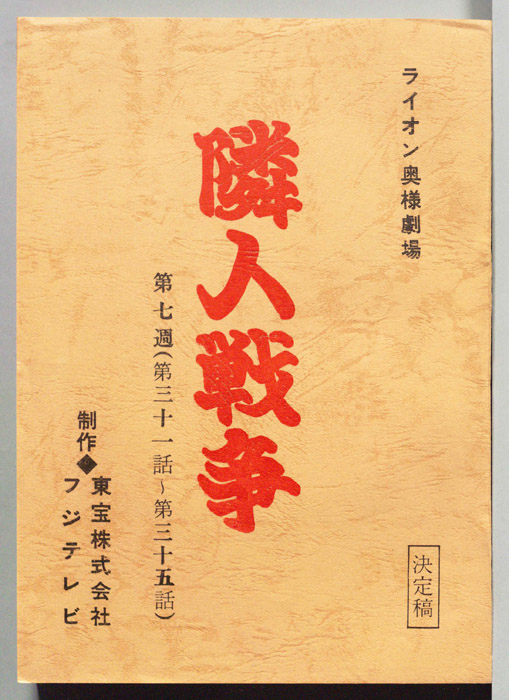 ライオン奥様劇場
隣人戦争
第七週(第三十一話～第三十五話)
制作◆東宝株式会社
フジテレビ
決定稿